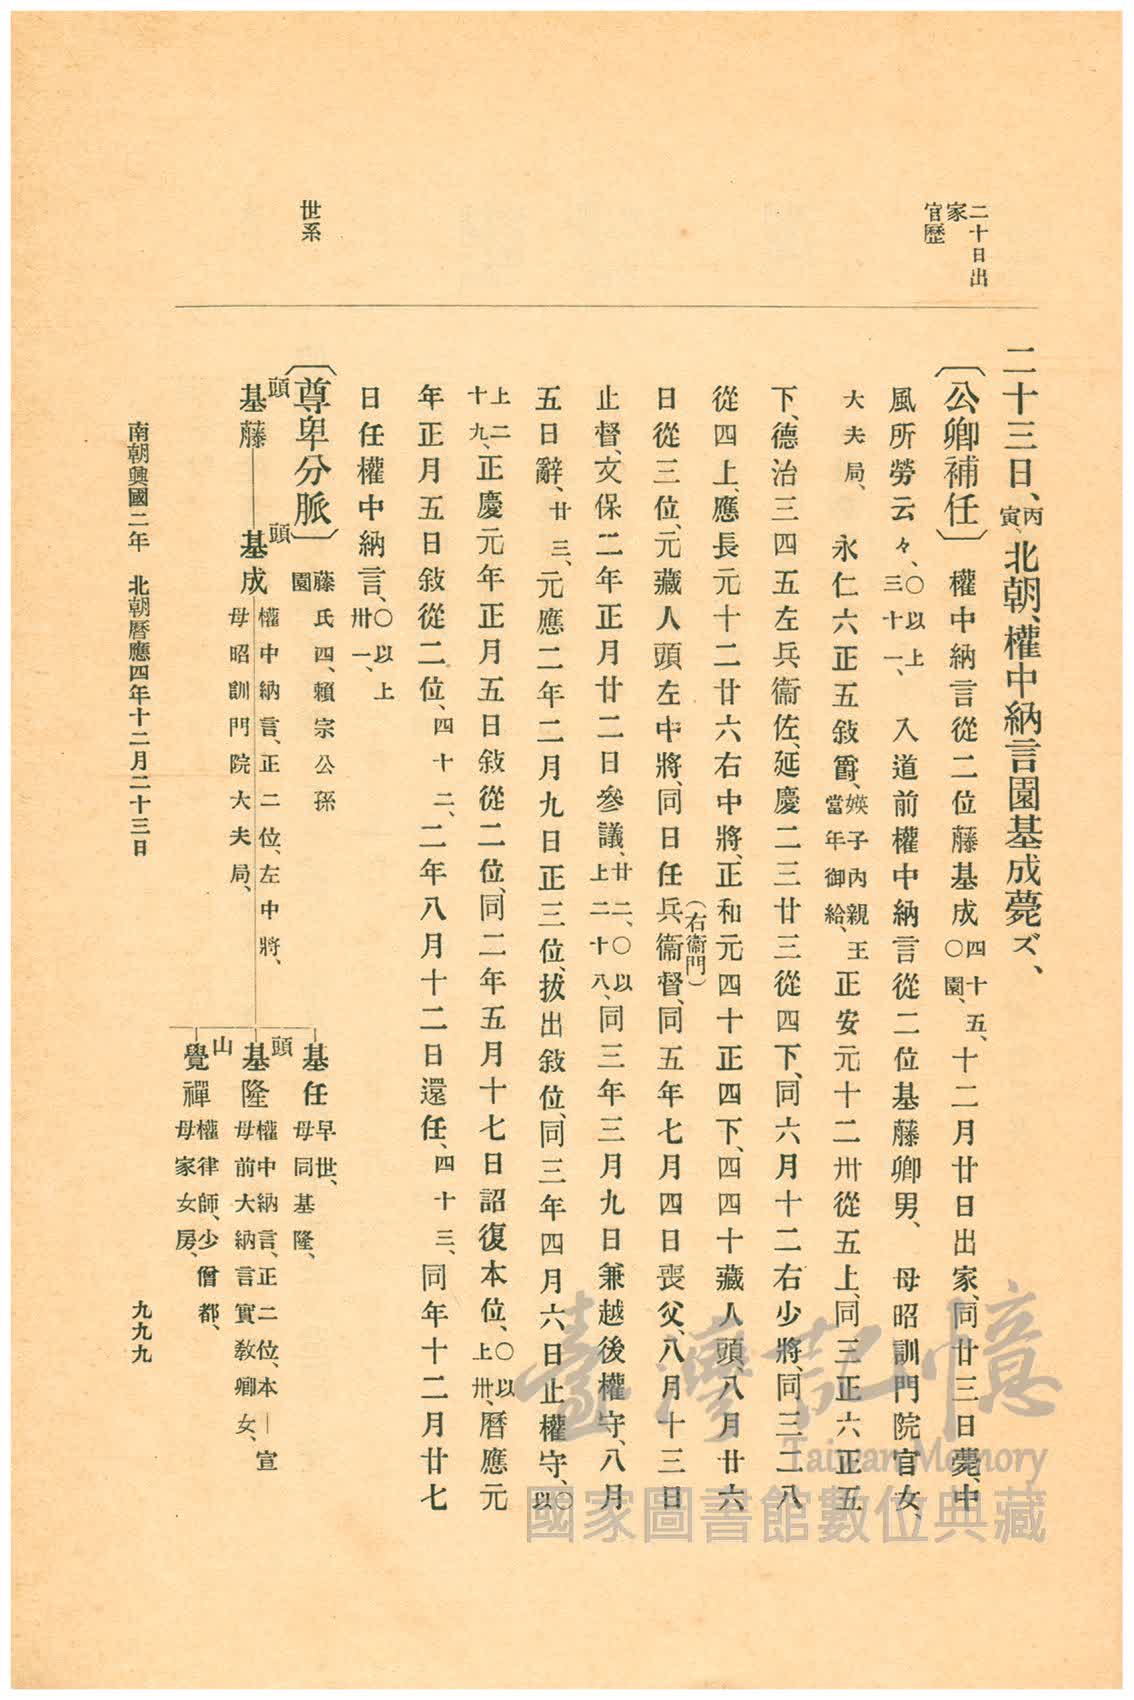 二十日出
家
官歷
世系
二十三日、丙寅、北朝、權中納言園基成薨ズ、
〔公卿補任〕 權中納言從二位藤基成四十五、〇園、十二月廿日出家、同廿三日薨、中
風所勞云々、〇以上三十一、 入道前權中納言從二位基藤卿男、 母昭訓門院官女、
大夫局、 永仁六正五敍爵、媖子內親王當年御給、正安元十二卅從五上、同三正六正五
下、德治三四五左兵衞佐、延慶二三廿三從四下、同六月十二右少將、同三二八
從四上、應長元十二廿六右中將、正和元四十正四下、四四十藏人頭、八月廿六
日從三位、元藏人頭左中將、同日任兵衞督、(右衞門)同五年七月四日喪父、八月十三日
止督、文保二年正月廿二日參議、廿二、〇以上二十八、同三年三月九日兼越後權守、八月
五日辭、廿三、元應二年二月九日正三位、拔出敍位、同三年四月六日止權守、〇以
上二十九、正慶元年正月五日敍從二位、同二年五月十七日詔復本位、〇以上卅、曆應元
年正月五日敍從二位、四十二、二年八月十二日還任、四十三、同年十二月廿七
日任權中納言、〇以上卅一、
〔尊卑分脈〕 藤氏四、賴宗公孫
園
頭
基藤
頭
基成
權中納言、正二位、左中將、
母昭訓門院大夫局、
基任
早世、
母同基隆、
頭
基隆
權中納言、正二位、本—宣
母前大納言實敎卿女、
山
覺禪
權律師、少僧都、
母家女房、
南朝興國二年 北朝曆應四年十二月二十三日
九九九
臺灣記憶
Taiwan Memory
國家圖書館數位典藏